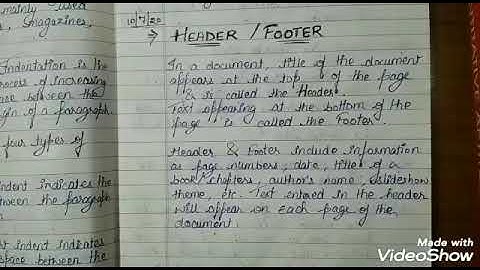 mainly used
, magazines,
Indentation is the
process of increasing
space between the
margin of a paragraph.
four types of
Indent indicates the
between the paragraph
indent indicates
space between the
10/7/20
→ HEADER / FOOTER
In a document, title of the document
appears at the top of the page
& is called the Header.
Text appearing at the bottom of the
page is called the Footer.
Header & Footer include information
as page numbers, date, title of a
book/chapters, author's name, slideshow
theme, etc. Text entered in the header
will appear on each page of the
document.
Made with
VideoShow